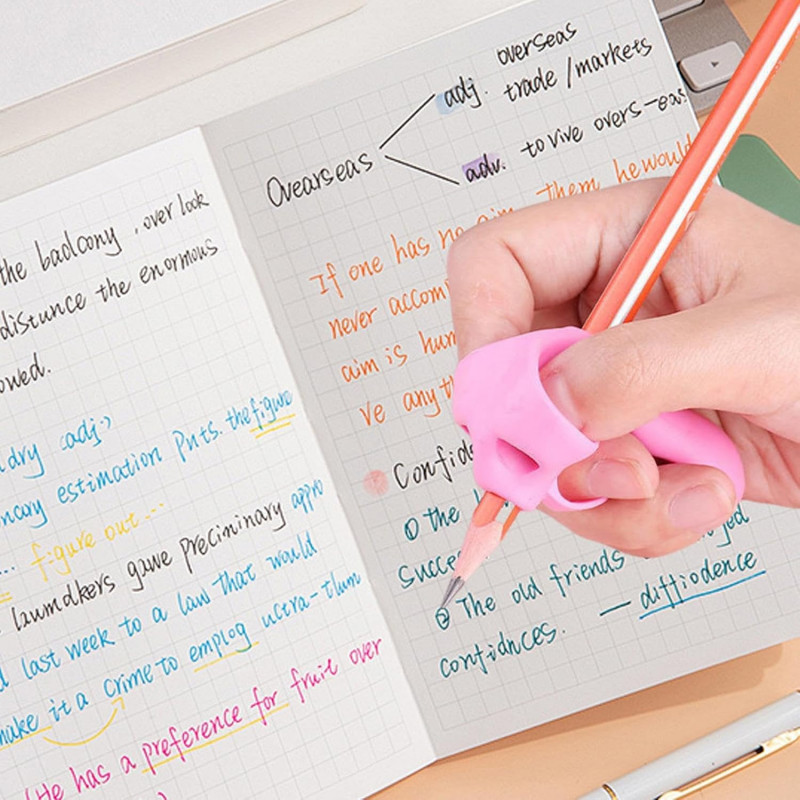 the badloony , over look
distunce the enormous
owed.
dry (adj)
nary estimation puts. the figure
... figure out ...
lawmdkers gave precininary appro
d last week to a law that would
make it a crime to emplog uctra-tlum
(He has a preference for fruit over
Ovearseas
adj. overseas
trade / markets
adv. to vive overs-eas
If one has no aim them he would
never accom
aim is hum
ve anyth
Confid
① the
succes
② The old friends
confidnces. — diffiodence